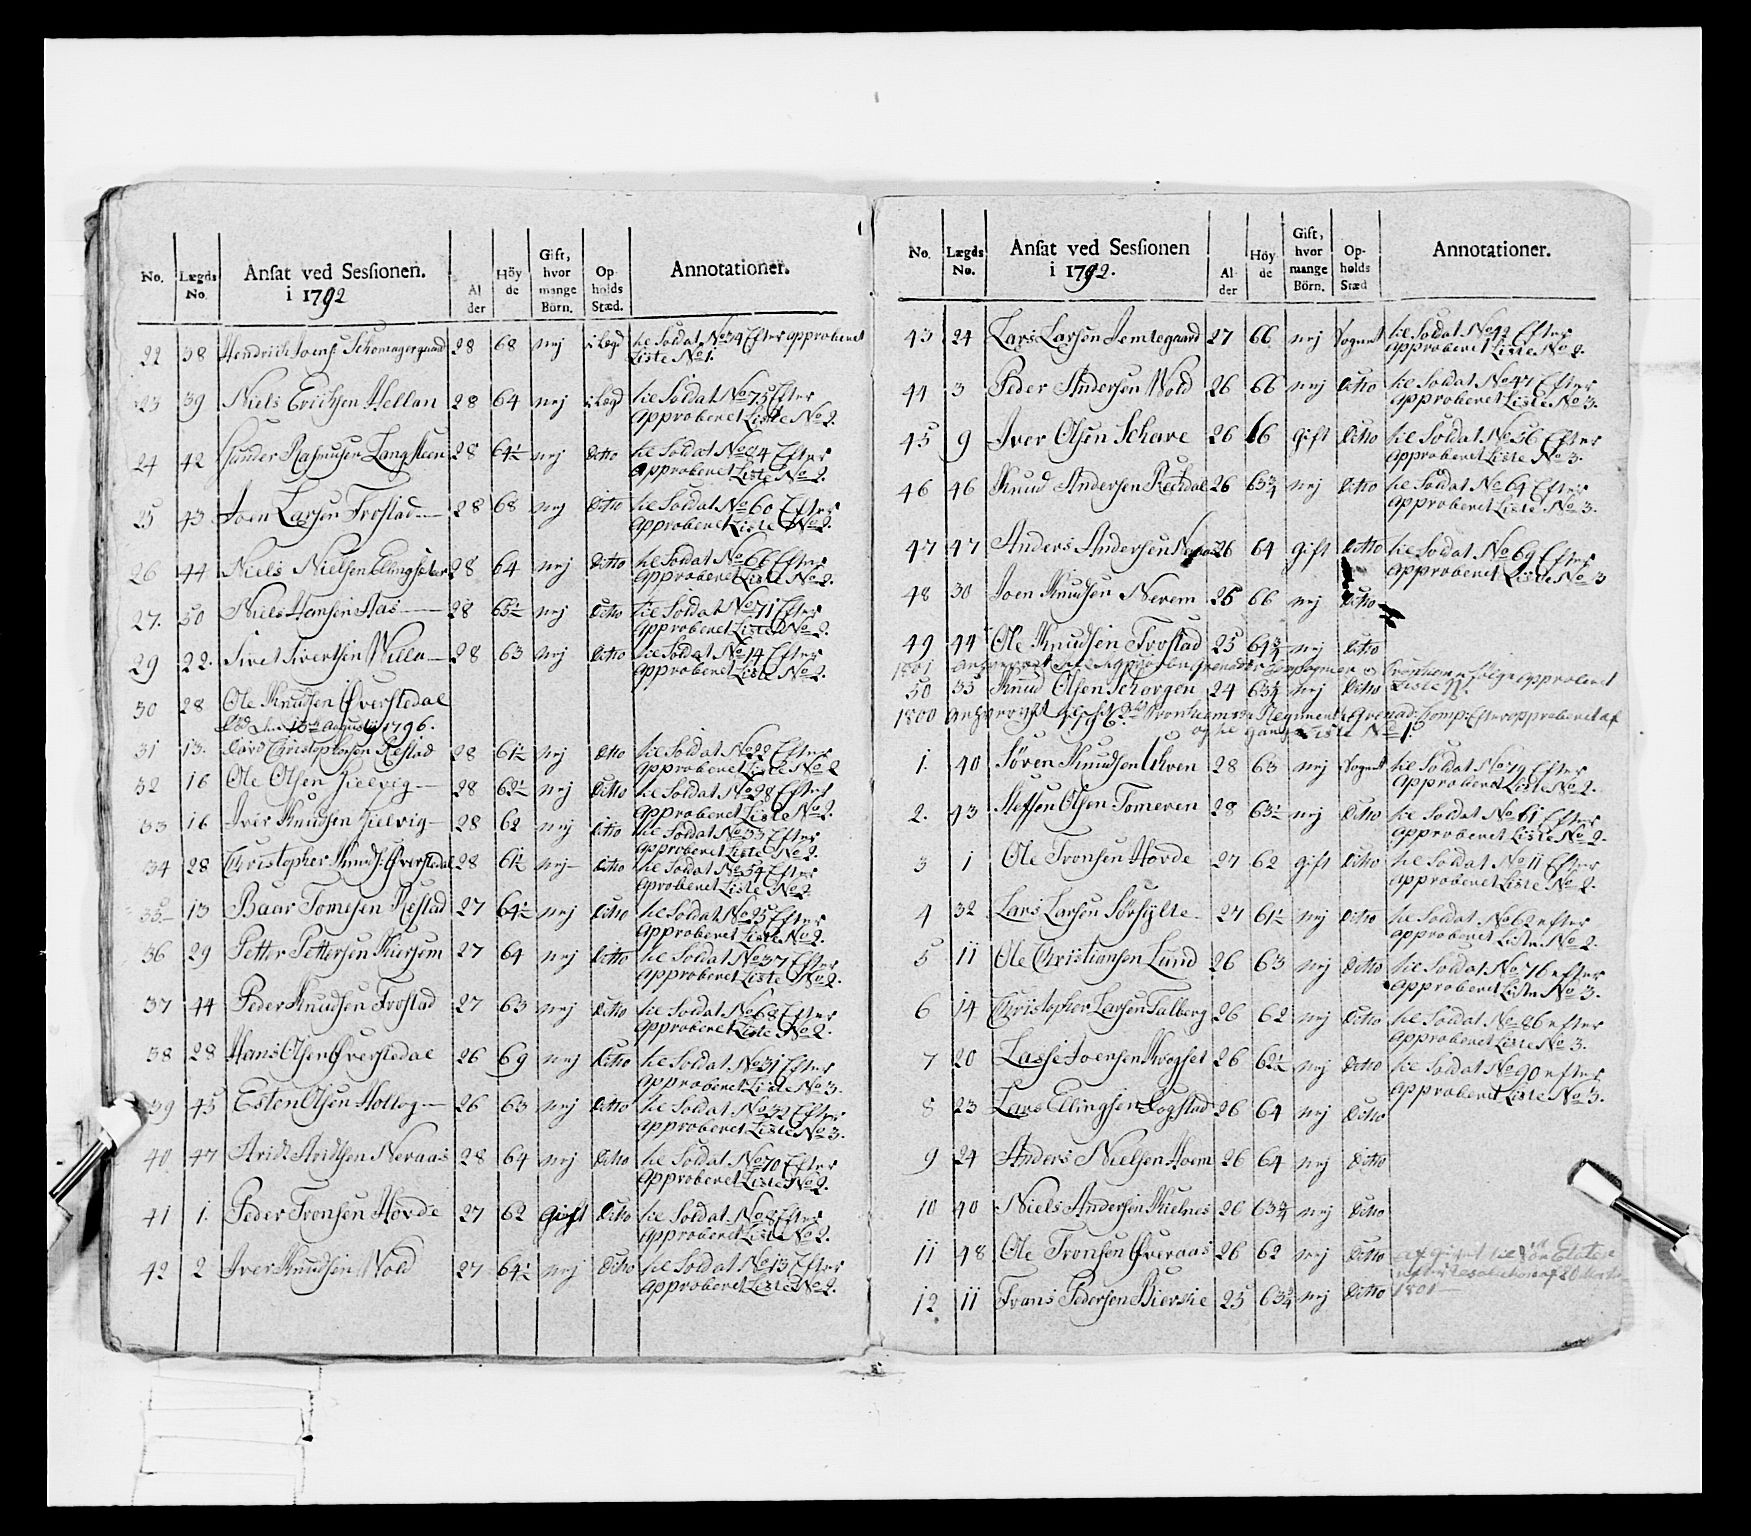 No. Lægds No. Ansat ved Sessionen. i 1792 Al der Höy de Gift, hvor mange Börn. Op holds Stæd. Annotationer.
22 38 28 68 nej i Lægd til Soldat No 34 Efter approberet
Liste No 1.
23 39 Niels Erichsen Hellan 28 64 nej i Lægd til Soldat No 75 Efter
approberet Liste No 2.
24 42 Rasmusen Langsteen 28 64½ nej Ditto til Soldat No 84 Efter
approberet Liste No 2.
25 43 Joen Larsen Frostad 28 68 nej Ditto til Soldat No 60 Efter
approberet Liste No 2.
26 44 Niels Nielsen Ellingsæter 28 64 nej Ditto til Soldat No 66 Efter
approberet Liste No 2.
27. 50 Niels Hansen Aas 28 nej Ditto til Soldat No 71 Efter
approberet Liste No 2.
29 22. Sivert Sivertsen 28 63 nej Ditto til Soldat No 14 Efter
approberet Liste No 2.
30 28 Ole Knudsen Øverstedal
1796.
31 13. Lars Christophersen Restad 28 61½ nej Ditto til Soldat No 22 Efter
approberet Liste No 2
32 16 Ole Olsen Hielvig 28 62½ nej Ditto til Soldat No 28 Efter
approberet Liste No 2.
33 16 Iver Knudsen Hielvig 28 62 nej Ditto til Soldat No 33 Efter
approberet Liste No 2.
34 28 Christopher Knuds: Øverstedal 28 61½ nej Ditto til Soldat No 54 Efter
aproberet Liste No 2
35 13 Baar Tomesen Restad 27 64½ nej Ditto til Soldat No 25 Efter
approberet Liste No 2.
36 29 Petter Pettersen 27 64 nej Ditto til Soldat No 37 Efter
approberet Liste No 2.
37 44 Peder Knudsen Frostad 27 63 nej Ditto til Soldat No 68 Efter
approberet Liste No 2.
38 28 Hans Olsen Øverstedal 26 69 nej Ditto til Soldat No 31 Efter
approberet Liste No 3.
39 45 Esten Olsen Holtog 26 63 nej Ditto til Soldat No 39 Efter
approberet Liste No 3.
40 47 Arvidsen Neraas 28 64 nej Ditto til Soldat No 70 Efter
approberet Liste No 2.
41 1. Peder Tronsen Hovde 27 62 Gift Ditto til Soldat No 8 Efter
approberet Liste No 2.
42 2 Iver Knudsen Wold 27 64½ nej Ditto til Soldat No 13 Efter
approberet Liste No 2.
No. Lægds No. Ansat ved Sessionen i 1792. Al der Höy de Gift, hvor mange Börn. Op- holds Stæd Annotationer.
43 24 Lars Larsen 27 66 nej Sognet til Soldat No 42 Efter
approberet Liste No 2.
44 3 Peder Andersen Wold 26 66 nej Ditto til Soldat No 47 Efter
approberet Liste No 3.
45 9 Iver Olsen Schare 26 66 gift Ditto til Soldat No 56 Efter
approberet Liste No 3.
46 46 Knud Andersen 26 63¾ nej Ditto til Soldat No 64 Efter
approberet Liste No 3.
47 47 Anders Andersen 26 64 gift Ditto til Soldat No 69 Efter
approberet Liste No 3
48 30 Joen Knudsen Nerem 25 66 nej Ditto
49 44 Ole Knudsen Frostad 25 64¾ nej Ditto
1801
50 35 Knud Olsen Schorgen 24 63¾ nej Ditto
1800
Liste No 1.
1. 40 Søren Knudsen 28 63 nej Sognet til Soldat No 79 Efter
approberet Liste No 2.
2. 43 Steffen Olsen Tomeren 28 63½ nej Ditto til Soldat No 61 Efter
approberet Liste No 2.
3 1 Ole Tronsen Hovde 27 62 gift Ditto til Soldat No 11 Efter
approberet Liste No 2.
4 32 Lars Larsen Sørsylte 27 61½ nej Ditto til Soldat No 62 efter
approberet Liste No 2.
5 11 Ole Christiansen Lund 26 63 nej Ditto til Soldat No 76 efter
approberet Liste No 3.
6 14 Christopher Larsen Talberg 26 62 nej Ditto til Soldat No 86 efter
approberet Liste No 3.
7 20 Lasse Joensen 26 62½ nej Ditto til Soldat No 90 efter
approberet Liste No 3.
8 23 Lars Ellingsen Logstad 26 64 nej Ditto
9 24 Anders Nielsen Hoem 26 64 nej Ditto
10 40 Niels Andersen 26 63¾ nej Ditto
11 48 Ole Tronsen Øveraas 26 62 nej Ditto
12 11 Frans Pedersen 25 63¾ nej Ditto 1801